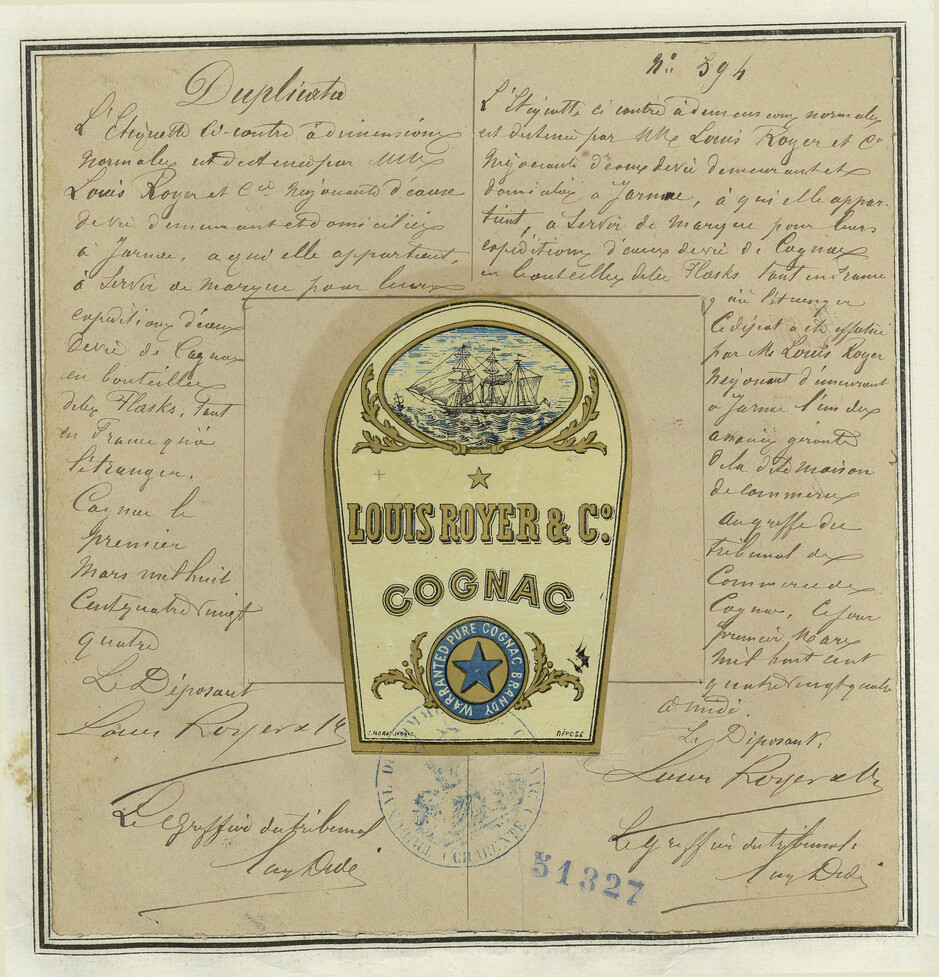 Duplicata
L'Etiquette ci-contre à dimensions
normales est destinée par MM.
Louis Royer et Cie Négociants d'eaux
de vie demeurant et domiciliés
à Jarnac, à qui elle appartient,
à servir de marque pour leurs
expéditions d'eaux
de vie de Cognac
en bouteilles
dites Flasks, tant
en France qu'à
l'étranger.
Cognac le
premier
Mars mil huit
Cent quatre vingt
quatre
Le Déposant
Louis Royer & Cie
Le Greffier du tribunal
No. 594
L'Etiquette ci contre à dimensions normales
est destinée par MM. Louis Royer et Cie
Négociants d'eaux de vie demeurant et
domiciliés à Jarnac, à qui elle appar-
tient, à servir de marque pour leurs
expéditions d'eaux de vie de Cognac
en bouteilles dites Flasks tant en France
qu'à l'étranger
Ce dépôt a été effectué
par Mr Louis Royer
Négociant demeurant
à Jarnac l'un des
associés gérants
de la dite maison
de commerce
au greffe du
tribunal de
Commerce de
Cognac, ce jour
premier Mars
mil huit cent
quatre vingt quatre
à midi.
Le Déposant.
Louis Royer & Cie
Le greffier du tribunal.
LOUIS ROYER & Co.
COGNAC
WARRANTED PURE COGNAC BRANDY
DÉPOSÉ
CHARENTE
51327